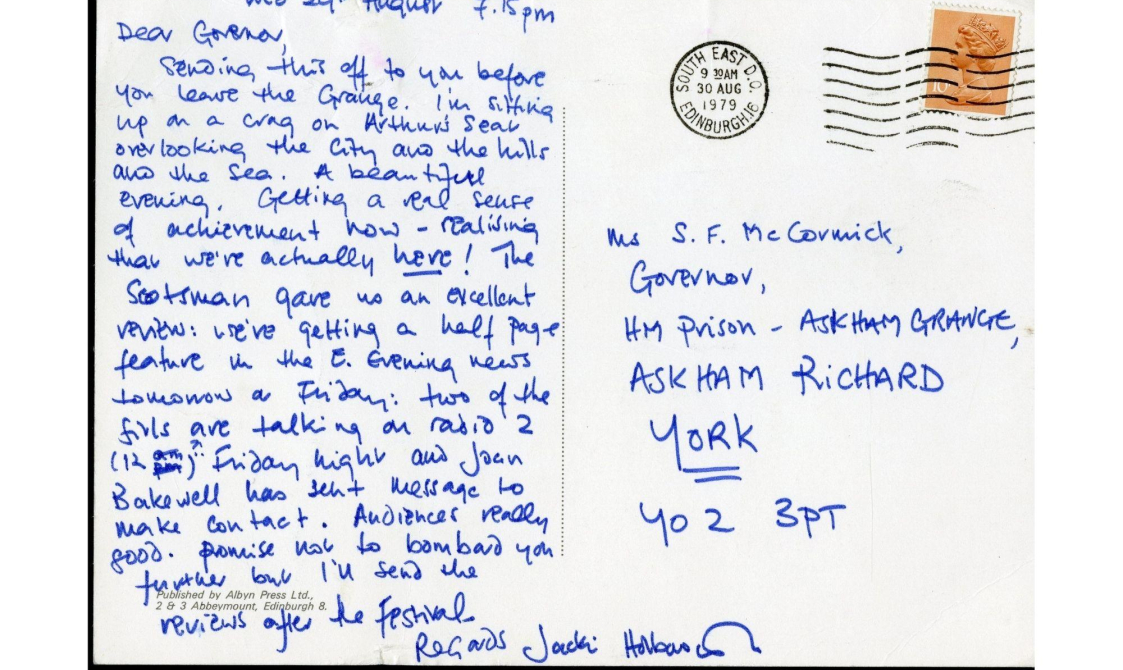 Wed 29th August 7.15pm
Dear Governor,
Sending this off to you before
you leave the Grange. I'm sitting
up on a crag on Arthur's Seat
overlooking the City and the hills
and the sea. A beautiful
evening. Getting a real sense
of achievement now - realising
that we're actually here! The
Scotsman gave us an excellent
review: we're getting a half page
feature in the E. Evening news
tomorrow or Friday: two of the
girls are talking on radio 2
(12 am) Friday night and Joan
Bakewell has sent message to
make contact. Audiences really
good. Promise not to bombard you
further but I'll send the
reviews after the Festival
Regards Jacki
Published by Albyn Press Ltd.,
2 & 3 Abbeymount, Edinburgh 8.
SOUTH EAST D.O.
9 30AM
30 AUG
1979
EDINBURGH.16
10P
Ms S. F. McCormick,
Governor,
HM Prison - ASKHAM GRANGE,
ASKHAM RICHARD
YORK
YO2 3PT